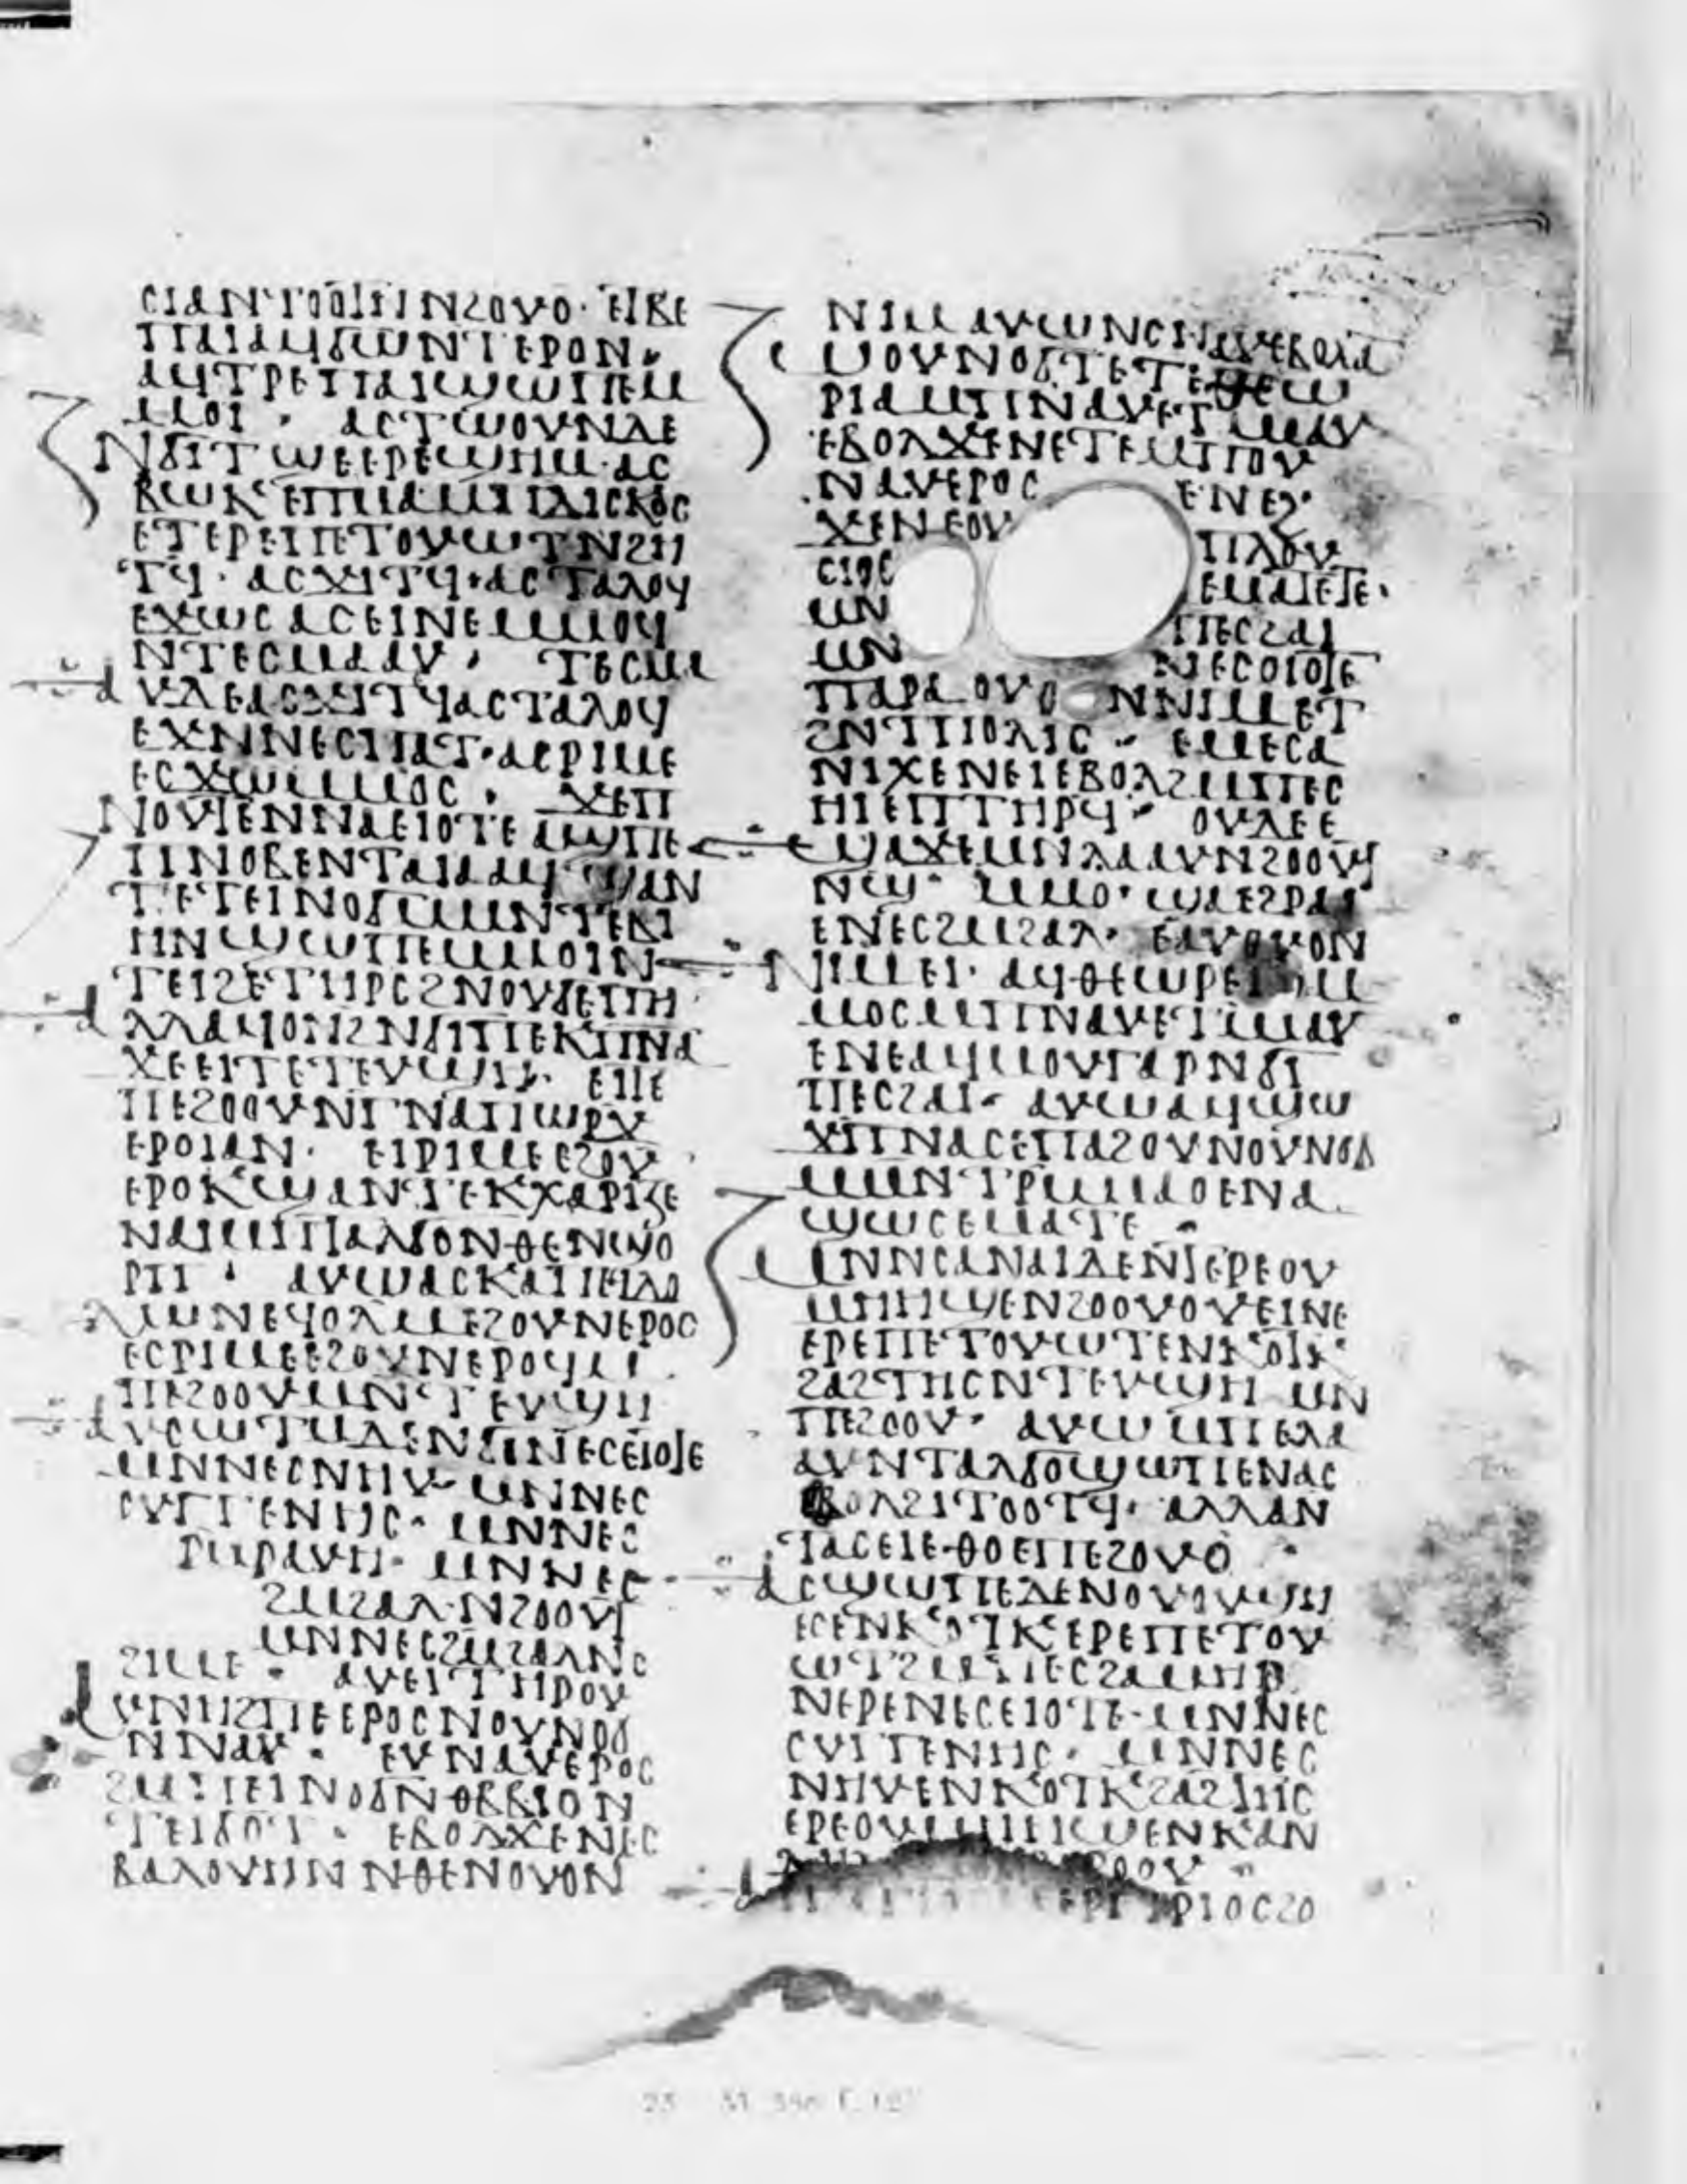 ⲥⲓⲁⲛⲧⲟⲟⲧⲛ̅ⲛϩⲟⲩⲟ· ⲉⲧⲃⲉ
ⲡⲁⲓⲁϥϭⲱⲛⲧ ⲉⲣⲟⲛ·
ⲁϥⲧⲣⲉⲡⲁⲓϣⲱⲡⲉⲙ
ⲙⲟⲓ · ⲁⲥⲧⲱⲟⲩⲛⲇⲉ
ⲛϭⲓⲧϣⲉⲉⲣⲉϣⲏⲙ·ⲁⲥ
ⲃⲱⲕⲉⲡⲙⲁⲙⲡⲇⲓⲥⲕⲟⲥ
ⲉⲧⲉⲣⲉⲡⲉⲧⲟⲩⲱⲧⲛϩⲏ
ⲧϥ· ⲁⲥϫⲓⲧϥ·ⲁⲥⲧⲁⲗⲟϥ
ⲉϫⲱⲥ ⲁⲥⲉⲓⲛⲉⲙⲙⲟϥ
ⲛⲧⲉⲥⲙⲁⲁⲩ· ⲧⲉⲥⲙⲁ
ⲁⲩⲇⲉⲁⲥϫⲓⲧϥⲁⲥⲧⲁⲗⲟϥ
ⲉϫⲛⲛⲉⲥⲡⲁⲧ·ⲁⲥⲣⲓⲙⲉ
ⲉⲥϫⲱⲙⲙⲟⲥ· ϫⲉⲡ
ⲛⲟⲩⲧⲉⲛⲛⲁⲉⲓⲟⲧⲉ ⲁϣⲡⲉ
ⲡⲛⲟⲃⲉⲛⲧⲁⲓⲁⲁϥ ϣⲁⲛ
ⲧⲉⲧⲉⲓⲛⲟϭⲙⲙⲛⲧⲉⲃⲓ
ⲏⲛ ϣⲱⲡⲉⲙⲙⲟⲓⲛ
ⲧⲉⲓϩⲉⲧⲏⲣⲥϩⲛⲟⲩϭⲉⲡⲏ
ⲁⲗⲗⲁϥⲟⲧⲛϩⲛϭⲓⲡⲉⲕⲡⲛⲁ
ϫⲉⲉⲓⲧⲉⲧⲉⲩϣⲏ· ⲉⲓⲧⲉ
ⲡⲉϩⲟⲟⲩⲛϯⲛⲁⲡⲱⲣϫ
ⲉⲣⲟⲓⲁⲛ· ⲉⲓⲣⲓⲙⲉⲉϩⲟⲩ
ⲉⲣⲟⲕϣⲁⲛⲧⲉⲕⲭⲁⲣⲓⲍⲉ
ⲛⲁⲓⲙⲡⲧⲁⲗϭⲟⲛⲑⲉⲛϣⲟ
ⲣⲡ · ⲁⲩⲱⲁⲥⲕⲁⲡⲉⲓⲇⲟ
ⲇⲱⲛⲉϥⲟⲗⲙⲉϩⲟⲩⲛⲉⲣⲟⲥ
ⲉⲥⲣⲓⲙⲉⲉϩⲟⲩⲛⲉⲣⲟϥⲙ
ⲡⲉϩⲟⲟⲩⲙⲛⲧⲉⲩϣⲏ
ⲁⲩⲥⲱⲧⲙⲇⲉⲛϭⲓⲛⲉⲥⲉⲓⲟⲧⲉ
ⲙⲛⲛⲉⲥⲛⲏⲩ· ⲙⲛⲛⲉⲥ
ⲥⲩⲅⲅⲉⲛⲏⲥ· ⲙⲛⲛⲉⲥ
ⲣⲙⲣⲁⲩⲏ· ⲙⲛⲛⲉⲥ
ϩⲙϩⲁⲗ·ⲛϩⲟⲟⲩⲧ
ⲙⲛⲛⲉⲥϩⲙϩⲁⲗⲛⲥ
ϩⲓⲙⲉ· ⲁⲩⲉⲓⲧⲏⲣⲟⲩ
ⲙⲡⲛⲏⲥⲧⲓⲉⲉⲣⲟⲥⲛⲟⲩⲛⲟϭ
ⲛⲛⲁⲩ· ⲉⲩⲛⲁⲩⲉⲣⲟⲥ
ϩⲙⲡⲉⲓⲛⲟϭⲛⲑⲃⲃⲓⲟⲛ
ⲧⲉⲓϭⲟⲧ· ⲉⲃⲟⲗϫⲉⲛⲉⲥ
ⲃⲁⲗⲟⲩⲏⲛ ⲛⲑⲉⲛⲟⲩⲟⲛ
ⲛⲓⲙ ⲁⲩⲱⲛⲥⲛⲁⲩⲉⲃⲟⲗⲁ
ⲟⲩⲛⲟϭⲧⲉⲧⲉⲑⲉⲱ
ⲣⲓⲁⲙⲡⲛⲁⲩⲉⲧⲙⲙⲁⲩ
ⲉⲃⲟⲗϫⲉⲛⲉⲧⲉⲙⲡⲟⲩ
ⲛⲁⲩⲉⲣⲟⲥ ⲉⲛⲉϩ·
ϫⲉⲛⲉⲟⲩ ⲡⲗⲟⲩ
ⲥⲓⲟⲥ ⲉⲙⲁⲧⲉⲧⲉ·
ⲙⲛ ⲡⲉⲥϩⲁⲓ
ⲙⲛ ⲛⲉⲥⲟⲓⲟⲧⲉ
ⲡⲁⲣⲁⲟⲩⲟⲛⲛⲓⲙⲉⲧ
ϩⲛⲧⲡⲟⲗⲓⲥ· ⲉⲙⲉⲥⲁ
ⲛⲓϫⲉⲛⲉⲓⲉⲃⲟⲗϩⲙⲡⲉⲥ
ⲏⲓⲉⲡⲧⲏⲣϥ· ⲟⲩⲇⲉⲉ
ϣⲁϫⲉⲙⲛⲗⲁⲁⲩⲛϩⲟⲟⲩⲧ
ⲛϣⲙⲙⲟ· ϣⲁⲉϩⲣⲁⲓ
ⲉⲛⲉⲥϩⲙϩⲁⲗ· ⲉⲁⲩⲟⲩⲟⲛ
ⲛⲓⲙⲉⲓ· ⲁϥⲑⲉⲱⲣⲉⲓⲙ
ⲙⲟⲥⲙⲡⲛⲁⲩⲉⲧⲙⲙⲁⲩ
ⲉⲛⲉⲁϥⲙⲟⲩⲅⲁⲣⲛϭⲓ
ⲡⲉⲥϩⲁⲓ· ⲁⲩⲱⲁϥϣⲱ
ϫⲡⲛⲁⲥⲉⲡⲁϩⲟⲩⲛⲟⲩⲛⲟϭ
ⲙⲙⲛⲧⲣⲙⲙⲁⲟⲉⲛⲁ
ϣⲱⲥⲉⲙⲁⲧⲉ·
ⲙⲛⲛⲥⲁⲛⲁⲓⲇⲉⲛⲧⲉⲣⲉⲟⲩ
ⲙⲏⲏϣⲉⲛϩⲟⲟⲩⲟⲩⲉⲓⲛⲉ
ⲉⲣⲉⲡⲉⲧⲟⲩⲱⲧⲉⲛⲕⲟⲧⲕ
ϩⲁϩⲧⲏⲥⲛⲧⲉⲩϣⲏ ⲙⲛ
ⲡⲉϩⲟⲟⲩ· ⲁⲩⲱⲙⲡⲉⲗⲁ
ⲁⲩⲛⲧⲁⲗϭⲟϣⲱⲡⲉⲛⲁⲥ
ⲉⲃⲟⲗϩⲓⲧⲟⲟⲧϥ· ⲁⲗⲗⲁⲛ
ⲧⲁⲥⲉⲓⲉⲑⲟⲉⲡⲉϩⲟⲩⲟ
ⲁⲥϣⲱⲡⲉⲇⲉⲛⲟⲩⲟⲩϣⲏ
ⲉⲥⲉⲛⲕⲟⲧⲕⲉⲣⲉⲡⲉⲧⲟⲩ
ⲱⲧϩⲙⲡⲉⲥϩⲁⲙⲏⲣ
ⲛⲉⲣⲉⲛⲉⲥⲉⲓⲟⲧⲉ·ⲙⲛⲛⲉⲥ
ⲥⲩⲅⲅⲉⲛⲏⲥ· ⲙⲛⲛⲉⲥ
ⲛⲏⲩⲉⲛⲕⲟⲧⲕϩⲁϩⲧⲏⲥ
ⲉⲣⲉⲟⲩⲙⲏⲏϣⲉⲛⲕⲁⲛ
ⲣⲟⲟⲩ
ⲣⲓⲟⲥϩⲟ